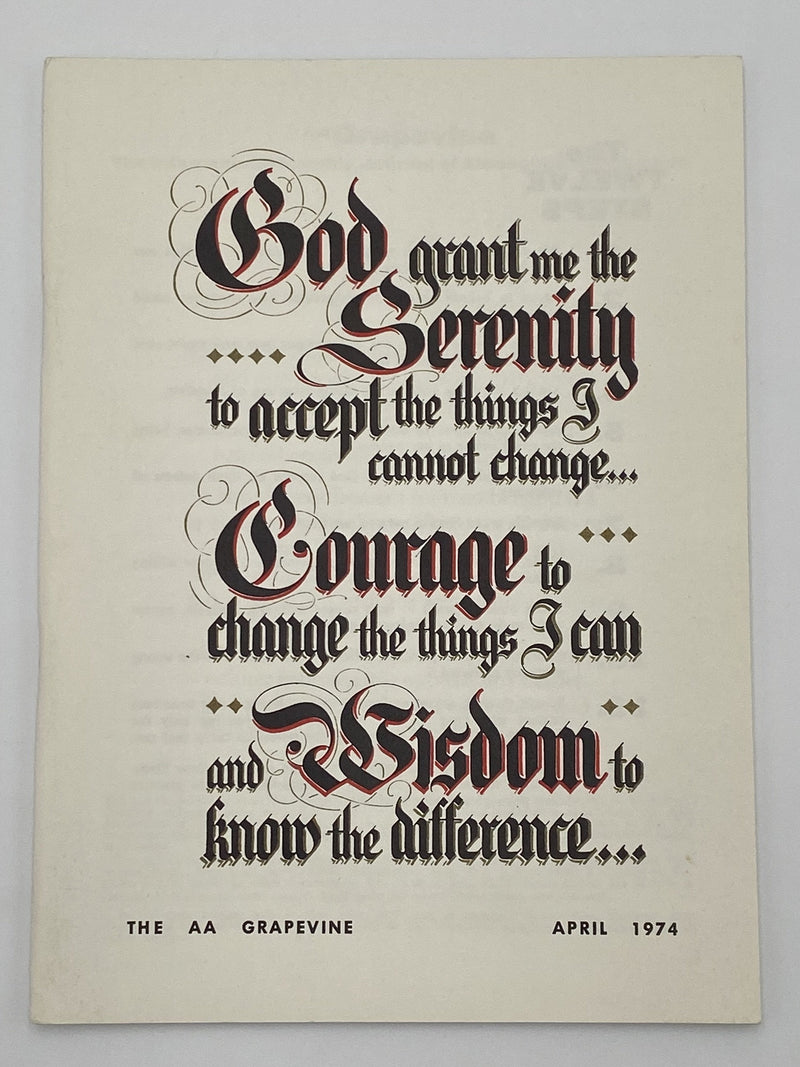 God grant me the
Serenity
to accept the things I
cannot change...
Courage to
change the things I can
and Wisdom to
know the difference...
THE AA GRAPEVINE APRIL 1974